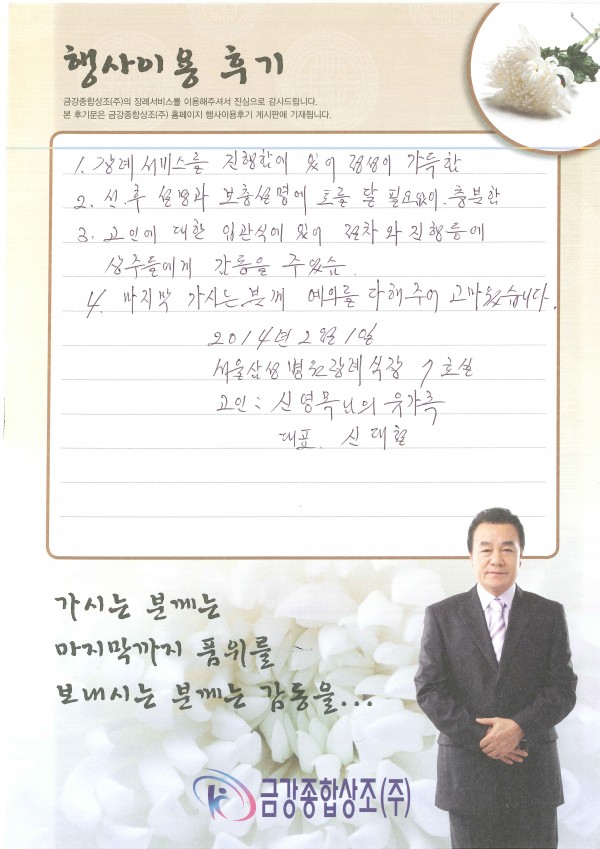 행사이용 후기
금강종합상조(주)의 장례서비스를 이용해주셔서 진심으로 감사드립니다.
본 후기문은 금강종합상조(주) 홈페이지 행사이용후기 게시판에 기재됩니다.
1. 장례서비스를 진행함에 있어 정성이 가득함
2. 선.후 설명과 보충설명에 토를 달 필요없이.충분함
3. 고인에 대한 입관식에 있어 절차와 진행등에
상주들에게 감동을 주었슴.
4. 마지막 가시는 분께 예의를 다해주어 고마웠습니다.
2014년 2월 1일
서울삼성병원장례식장 7호실
고인: 신영목님의 유가족
대표. 신대철
가시는 분께는
마지막까지 품위를
보내시는 분께는 감동을...
금강종합상조(주)